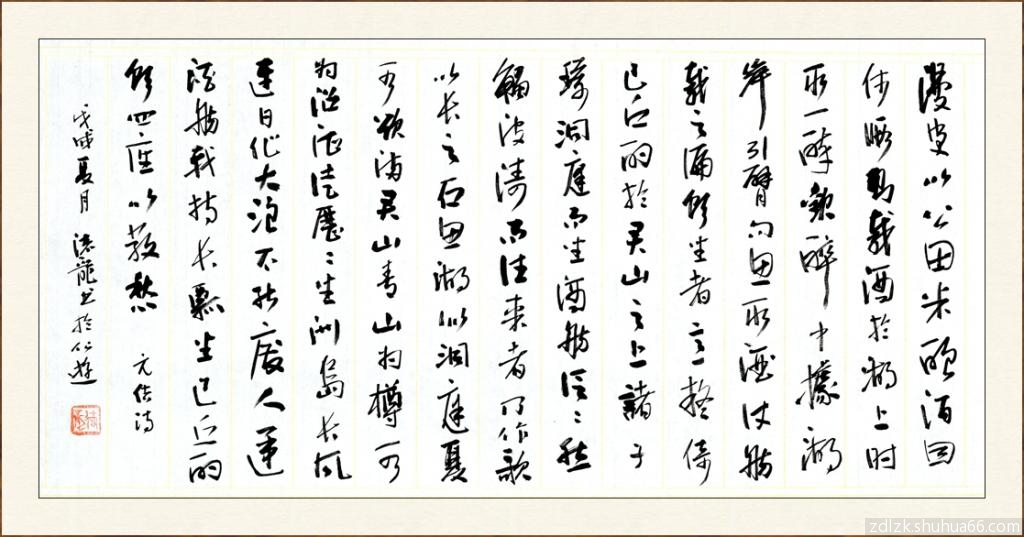 漫叟以公田米酿酒因
休暇則載酒於湖上时
取一醉歡醉中據湖
岸引臂向鱼取酒使舫
載之遍飲坐者意疑倚
巴丘酌於君山之上諸子
環洞庭而坐酒舫泛々然
觸波濤而往来者乃作歌
以长之石鱼湖似洞庭夏
水欲满君山青山为樽水
为沼酒徒歷々坐洲島长風
連日作大浪不能廢人運
酒舫我持长瓢坐巴丘酌
飲四座以散愁 元结诗
戊戌夏月 龍书於仙遊
zdlzk.shuhua66.com